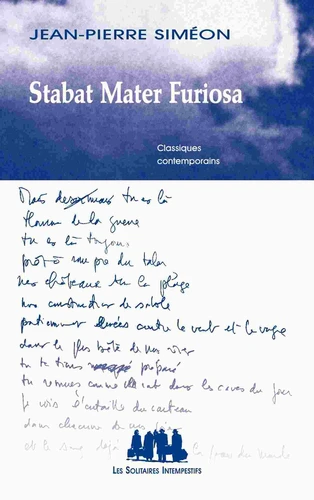 JEAN-PIERRE SIMÉON
Stabat Mater Furiosa
Classiques
contemporains
Mais tu es là
Homme de la guerre
tu es là toujours
prêt à rompre du talon
nos châteaux sur la plage
nos constructions de sable
patiemment levées contre le vent et la vague
dans le plus de nos
tu te tiens préparé
tu remues comme un rat dans les caves du jour
je vois l'entaille du couteau
dans chacune de nos
de le sang déjà
LES SOLITAIRES INTEMPESTIFS